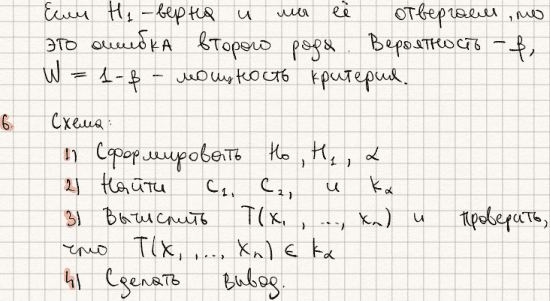 Если H₁ - верна и мы её отвергаем, то
это ошибка второго рода. Вероятность - β,
W = 1-β - мощность критерия.
6. Схема:
1) Сформировать H₀, H₁, α
2) Найти C₁, C₂, и K_α
3) Вычислить T(x₁, ..., xₙ) и проверить,
что T(x₁, ..., xₙ) ∈ K_α
4) Сделать вывод.